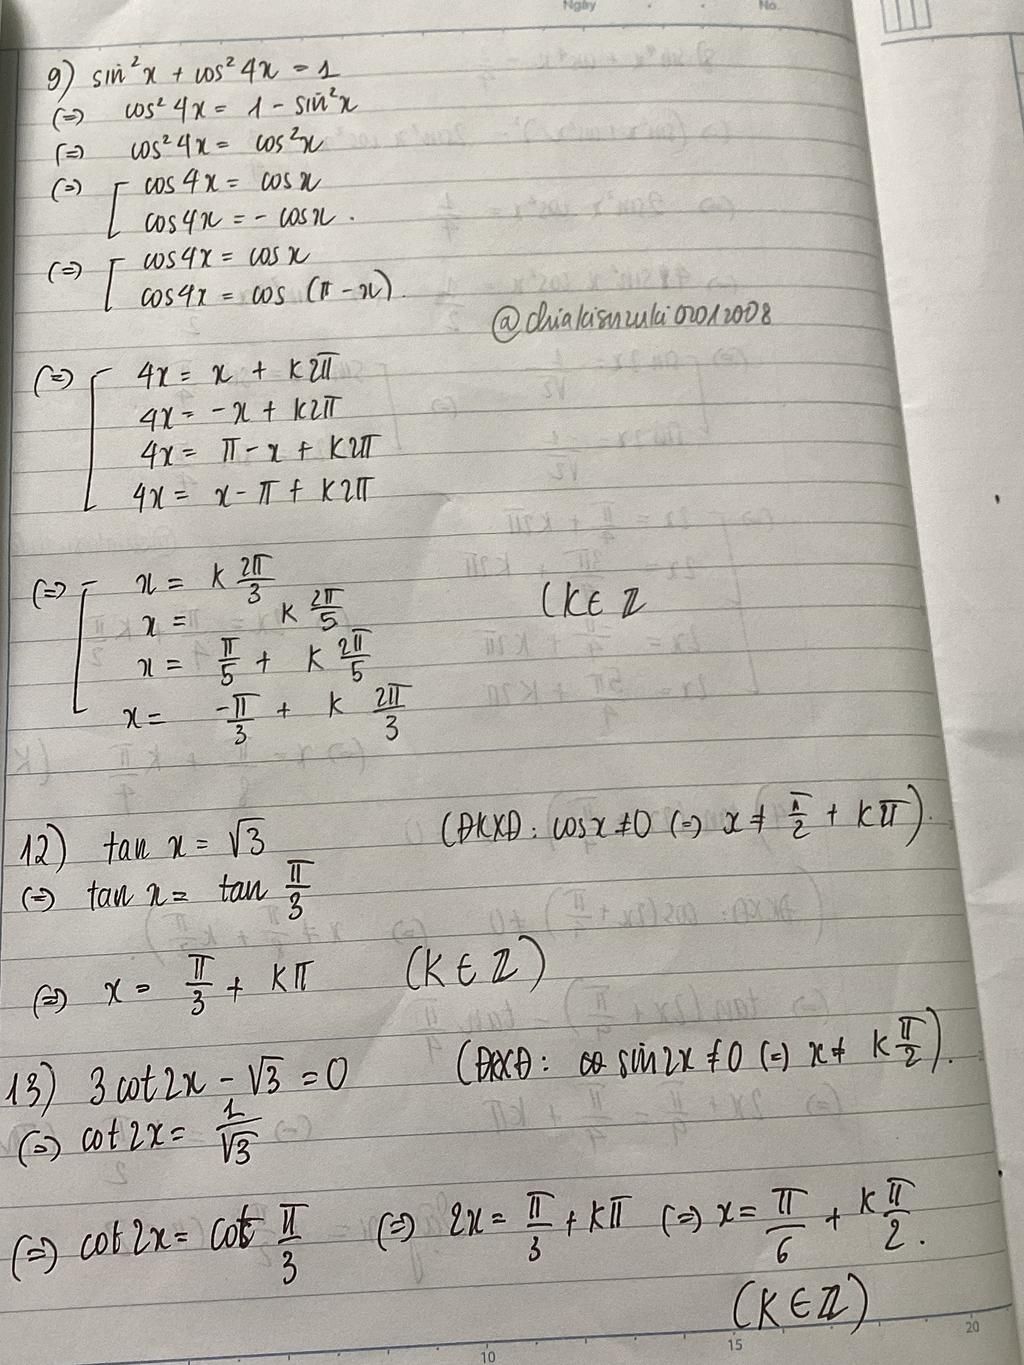 Ngày
No.
9) sin²x + cos²4x = 1
(=) cos²4x = 1 - sin²x
(=) cos²4x = cos²x
(=) [ cos4x = cosx
cos4x = - cosx .
(=) [ cos4x = cosx
cos4x = cos (π - x) .
@chiakisuzuki02012008
(=) [ 4x = x + k2π
4x = -x + k2π
4x = π - x + k2π
4x = x - π + k2π
(=) [ x = k 2π/3
x = k 2π/5 (k ∈ Z
x = π/5 + k 2π/5
x = -π/3 + k 2π/3
12) tan x = √3 (ĐKXĐ: cosx ≠ 0 (=) x ≠ π/2 + kπ).
(=) tan x = tan π/3
(=) x = π/3 + kπ (k ∈ Z)
13) 3cot2x - √3 = 0 (ĐKXĐ: sin2x ≠ 0 (=) x ≠ k π/2).
(=) cot2x = 1/√3
(=) cot2x = cot π/3 (=) 2x = π/3 + kπ (=) x = π/6 + k π/2 .
(k ∈ Z)
10 15 20